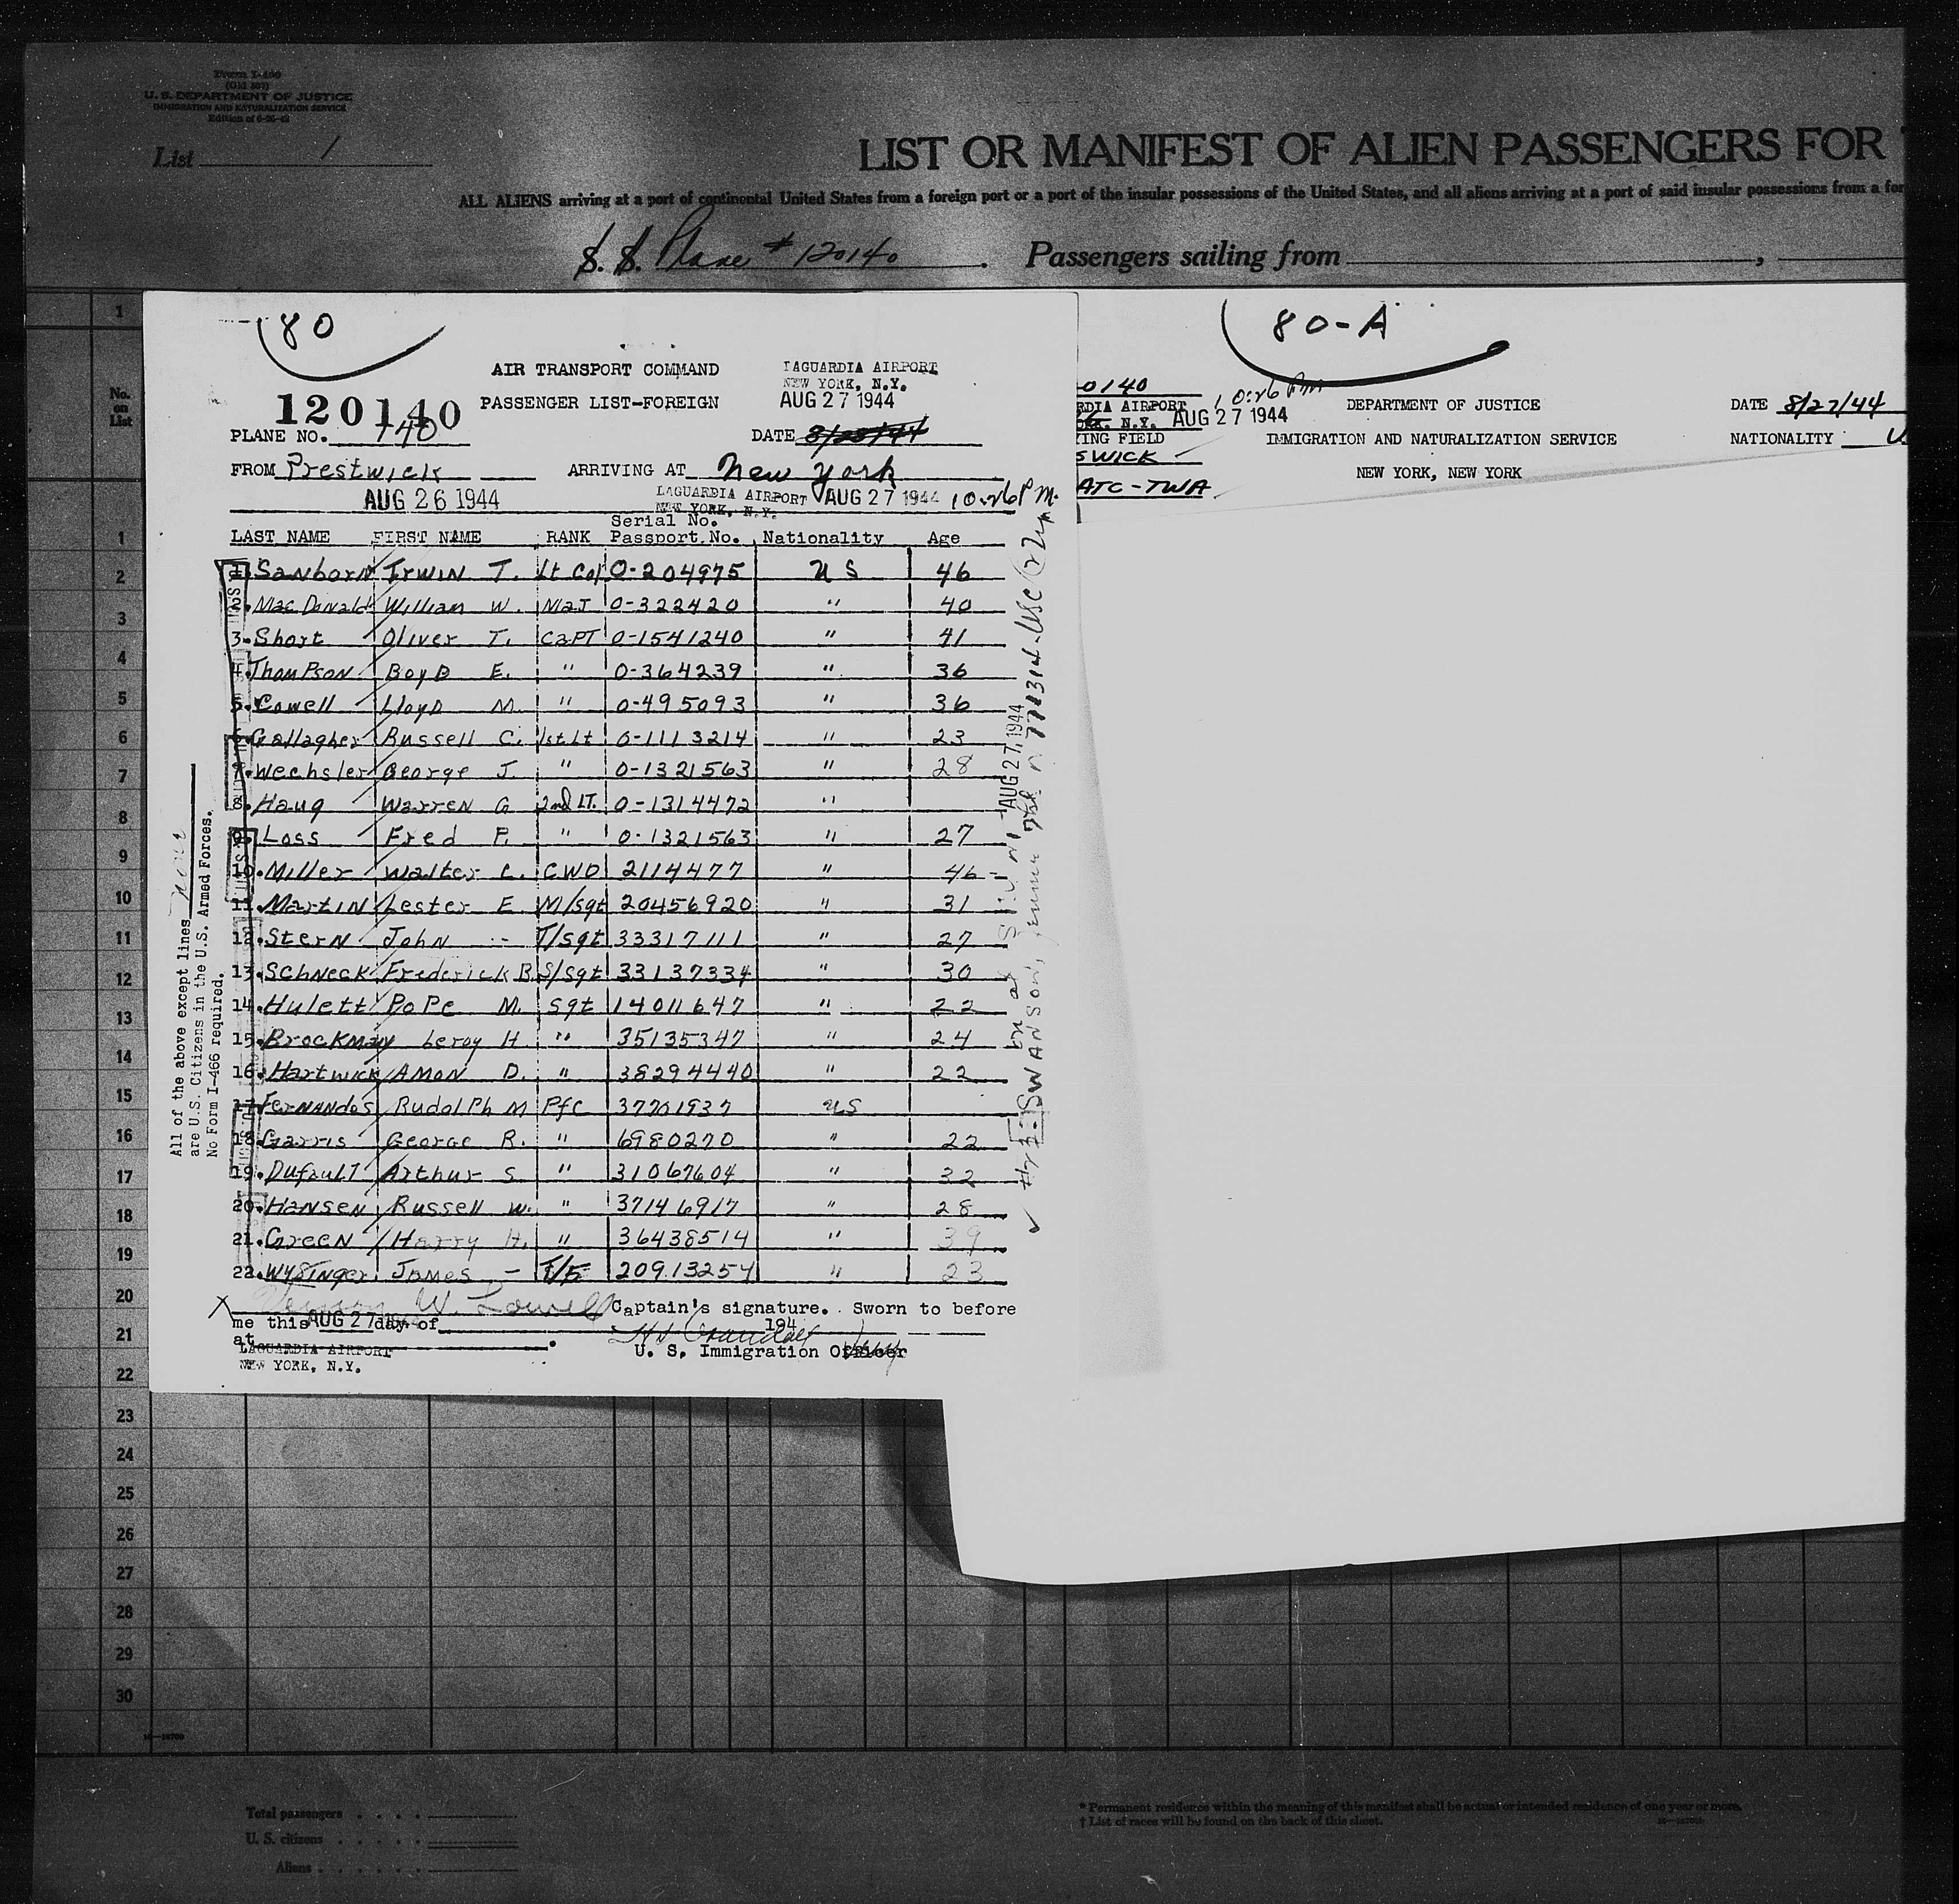 Form I-400
(Old 500)
U. S. DEPARTMENT OF JUSTICE
IMMIGRATION AND NATURALIZATION SERVICE
Edition of 6-26-42
List 1
LIST OR MANIFEST OF ALIEN PASSENGERS FOR
ALL ALIENS arriving at a port of continental United States from a foreign port or a port of the insular possessions of the United States, and all aliens arriving at a port of said insular possessions from a for
S. S. Plane # 120140. Passengers sailing from ,
No. on List
80
AIR TRANSPORT COMMAND
LAGUARDIA AIRPORT
NEW YORK, N.Y.
120140
PASSENGER LIST-FOREIGN
AUG 27 1944
PLANE NO. 140
DATE 8/28/44
FROM Prestwick ARRIVING AT New York
AUG 26 1944
LAGUARDIA AIRPORT AUG 27 1944 10:26 P.M.
NEW YORK, N.Y.
Serial No.
LAST NAME FIRST NAME RANK Passport No. Nationality Age
1. Sanborn IRWIN T. Lt Col O-204975 US 46
2. MacDonald William W. MaJ O-322420 " 40
3. Short Oliver T. CaPT O-1541240 " 41
4. ThomPson BoyD E. " O-364239 " 36
5. Cowell LloyD M. " O-495093 " 36
6. Gallagher Russell C. 1st Lt O-1113214 " 23
7. Wechsler George J. " O-1321563 " 28
8. Haug Warren G 2nd LT. O-1314472 "
9. Loss Fred P. " O-1321563 " 27
10. Miller Walter C. CWO 2114477 " 46
11. Martin Lester E M/sgt 20456920 " 31
12. Stern John - T/sgt 33317111 " 27
13. Schneck Frederick B. S/sgt 33137334 " 30
14. Hulett PoPe M. Sgt 14011647 " 22
15. Brockman Leroy H. " 35135347 " 24
16. Hartwick AMON D. " 38294440 " 22
17. Fernandos RudolPh M Pfc 37701937 US
18. Garris George R. " 6980270 " 22
19. DufaulT Arthur S " 31067604 " 32
20. Hansen Russell W. " 37146917 " 28
21. Green Harry H. " 36438514 " 39
22. Wysinger James - T/5 20913254 " 23
X W. Lowell Captain's signature. Sworn to before
me this AUG 27 day of 194
at
LAGUARDIA AIRPORT
NEW YORK, N.Y.
U. S. Immigration Officer
All of the above except lines none
are U.S. Citizens in the U.S. Armed Forces.
No Form I-466 required.
AUG 27 1944
80-A
0140
10:26 PM
RDIA AIRPORT
AUG 27 1944
DEPARTMENT OF JUSTICE
DATE 8/27/44
ING FIELD
IMMIGRATION AND NATURALIZATION SERVICE
NATIONALITY U
SWICK
NEW YORK, NEW YORK
ATC-TWA
1
2
3
4
5
6
7
8
9
10
11
12
13
14
15
16
17
18
19
20
21
22
23
24
25
26
27
28
29
30
Total passengers
U. S. citizens
Aliens
* Permanent residence within the meaning of this manifest shall be actual or intended residence of one year or more.
† List of races will be found on the back of this sheet.